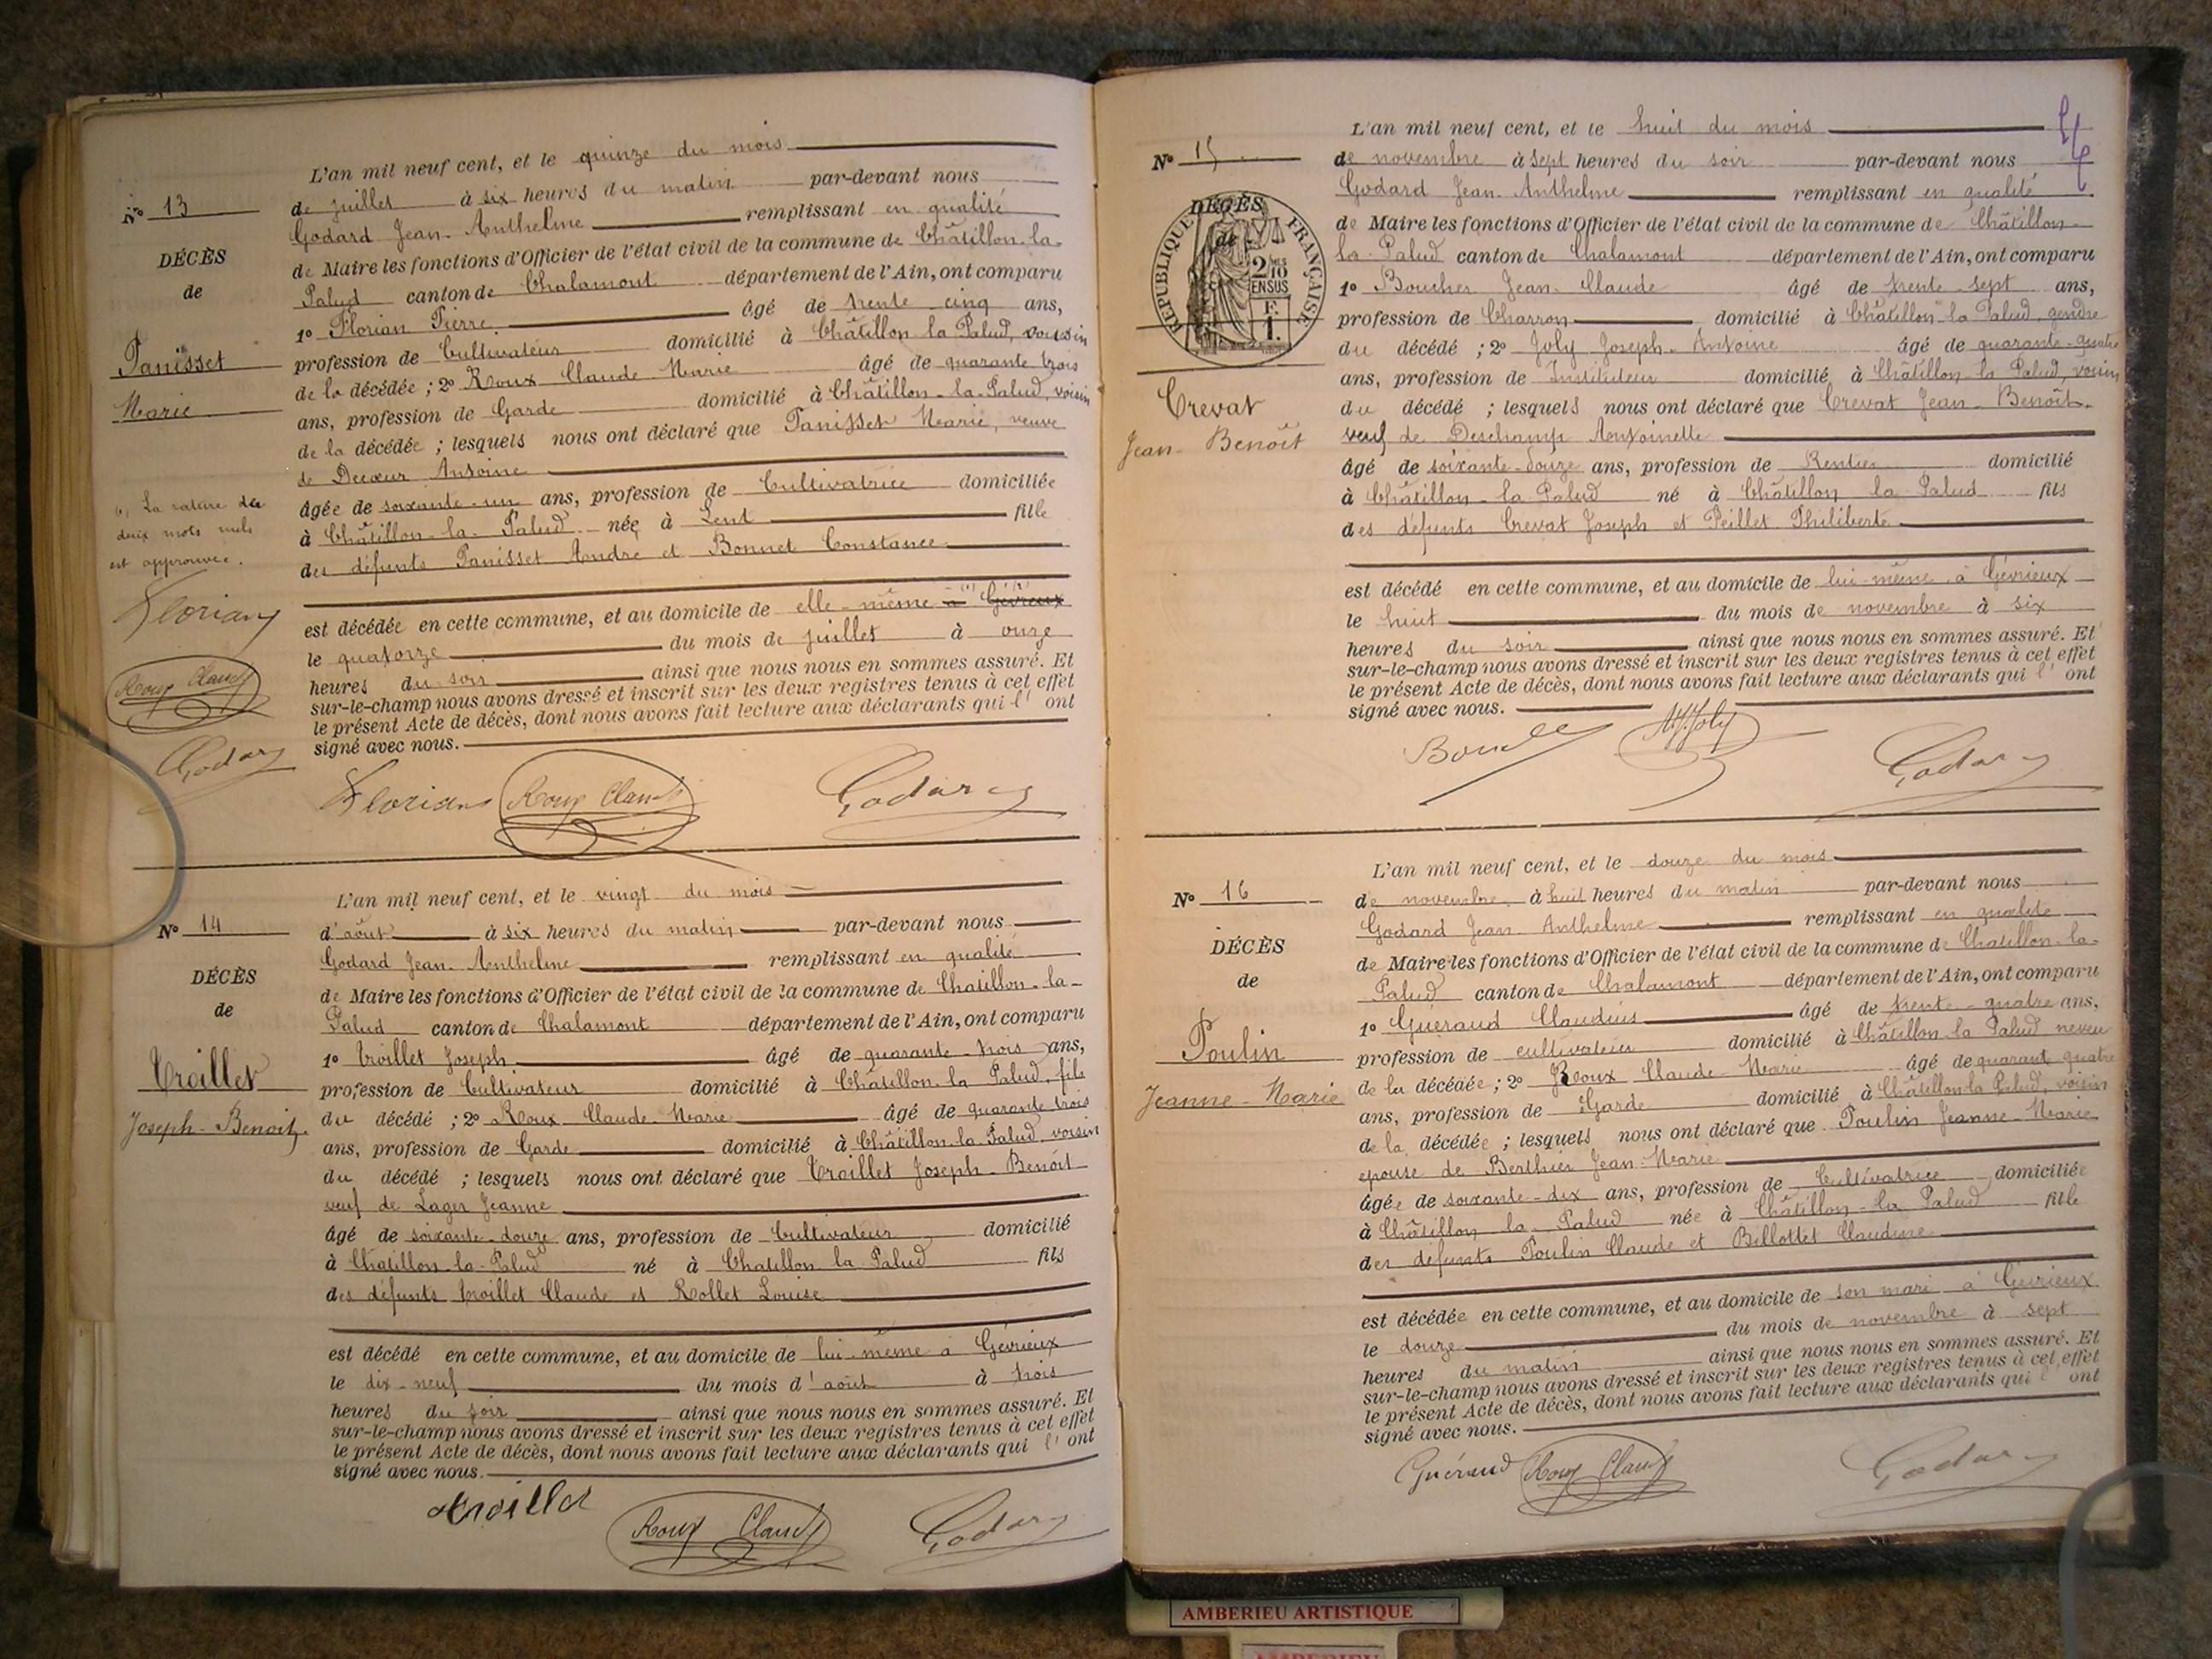 L'an mil neuf cent, et le quinze du mois
N° 13
de juillet à six heures du matin par-devant nous
Godard Jean-Anthelme remplissant en qualité
DÉCÈS
de Maire les fonctions d'Officier de l'état civil de la commune de Châtillon-la-
de
Palud canton de Chalamont département de l'Ain, ont comparu
1° Florian Pierre âgé de trente-cinq ans,
Panisset
profession de Cultivateur domicilié à Châtillon-la-Palud, voisin
de la décédée ; 2° Roux Claude-Marie âgé de quarante trois
Marie
ans, profession de Garde domicilié à Châtillon-la-Palud, voisin
de la décédée ; lesquels nous ont déclaré que Panisset Marie, veuve
de Antoine
âgée de soixante-un ans, profession de Cultivatrice domiciliée
La rature des
deux mots nuls
est approuvée.
à Châtillon-la-Palud née à Lent fille
des défunts Panisset André et Bonnet Constance
est décédée en cette commune, et au domicile de elle-même à Gévrieux
le quatorze du mois de juillet à onze
heures du soir ainsi que nous nous en sommes assuré. Et
sur-le-champ nous avons dressé et inscrit sur les deux registres tenus à cet effet
le présent Acte de décès, dont nous avons fait lecture aux déclarants qui l'ont
signé avec nous.
Florian
Roux Claude
Godard
Florian Roux Claude Godard
L'an mil neuf cent, et le vingt du mois
N° 14
d'août à six heures du matin par-devant nous
Godard Jean-Anthelme remplissant en qualité
DÉCÈS
de Maire les fonctions d'Officier de l'état civil de la commune de Chatillon-la-
de
Palud canton de Chalamont département de l'Ain, ont comparu
1° Troillet Joseph âgé de quarante-trois ans,
Troillet
profession de Cultivateur domicilié à Châtillon-la-Palud, fils
Joseph-Benoit
du décédé ; 2° Roux Claude-Marie âgé de quarante trois
ans, profession de Garde domicilié à Châtillon-la-Palud, voisin
du décédé ; lesquels nous ont déclaré que Troillet Joseph-Benoit
veuf de Lager Jeanne
âgé de soixante-douze ans, profession de Cultivateur domicilié
à Chatillon-la-Palud né à Chatillon-la-Palud fils
des défunts Troillet Claude et Rollet Louise
est décédé en cette commune, et au domicile de lui-même à Gévrieux
le dix-neuf du mois d'août à trois
heures du soir ainsi que nous nous en sommes assuré. Et
sur-le-champ nous avons dressé et inscrit sur les deux registres tenus à cet effet
le présent Acte de décès, dont nous avons fait lecture aux déclarants qui l'ont
signé avec nous.
troillet Roux Claude Godard
L'an mil neuf cent, et le huit du mois
N° 15
de novembre à sept heures du soir par-devant nous
Godard Jean-Anthelme remplissant en qualité
DÉCÈS
de
RÉPUBLIQUE FRANÇAISE
2/10 EN SUS
F.
1.
de Maire les fonctions d'Officier de l'état civil de la commune de Châtillon-
la-Palud canton de Chalamont département de l'Ain, ont comparu
1° Boucher Jean-Claude âgé de trente-sept ans,
profession de Charron domicilié à Châtillon-la-Palud, gendre
du décédé ; 2° Joly Joseph-Antoine âgé de quarante-quatre
ans, profession de Instituteur domicilié à Châtillon-la-Palud, voisin
Crevat
du décédé ; lesquels nous ont déclaré que Crevat Jean-Benoît
Jean-Benoît
veuf de Deschamp Antoinette
âgé de soixante-douze ans, profession de Rentier domicilié
à Châtillon-la-Palud né à Châtillon-la-Palud fils
des défunts Crevat Joseph et Peillet Philiberte
est décédé en cette commune, et au domicile de lui-même à Gévrieux
le huit du mois de novembre à six
heures du soir ainsi que nous nous en sommes assuré. Et
sur-le-champ nous avons dressé et inscrit sur les deux registres tenus à cet effet
le présent Acte de décès, dont nous avons fait lecture aux déclarants qui l'ont
signé avec nous.
Joly Godard
L'an mil neuf cent, et le douze du mois
N° 16
de novembre à huit heures du matin par-devant nous
Godard Jean-Anthelme remplissant en qualité
DÉCÈS
de Maire les fonctions d'Officier de l'état civil de la commune de Chatillon-la-
de
Palud canton de Chalamont département de l'Ain, ont comparu
1° Guéraud Claudius âgé de trente-quatre ans,
Poulin
profession de cultivateur domicilié à Châtillon-la-Palud neveu
Jeanne-Marie
de la décédée ; 2° Roux Claude-Marie âgé de quarant quatre
ans, profession de Garde domicilié à Châtillon-la-Palud, voisin
de la décédée ; lesquels nous ont déclaré que Poulin Jeanne-Marie
epouse de Berthier Jean-Marie
âgée de soixante-dix ans, profession de Cultivatrice domiciliée
à Châtillon-la-Palud née à Châtillon-la-Palud fille
des défunts Poulin Claude et Billottet Claudine
est décédée en cette commune, et au domicile de son mari à Gévrieux
le douze du mois de novembre à sept
heures du matin ainsi que nous nous en sommes assuré. Et
sur-le-champ nous avons dressé et inscrit sur les deux registres tenus à cet effet
le présent Acte de décès, dont nous avons fait lecture aux déclarants qui l'ont
signé avec nous.
Guéraud Roux Claude Godard
AMBERIEU ARTISTIQUE
AMBERIEU